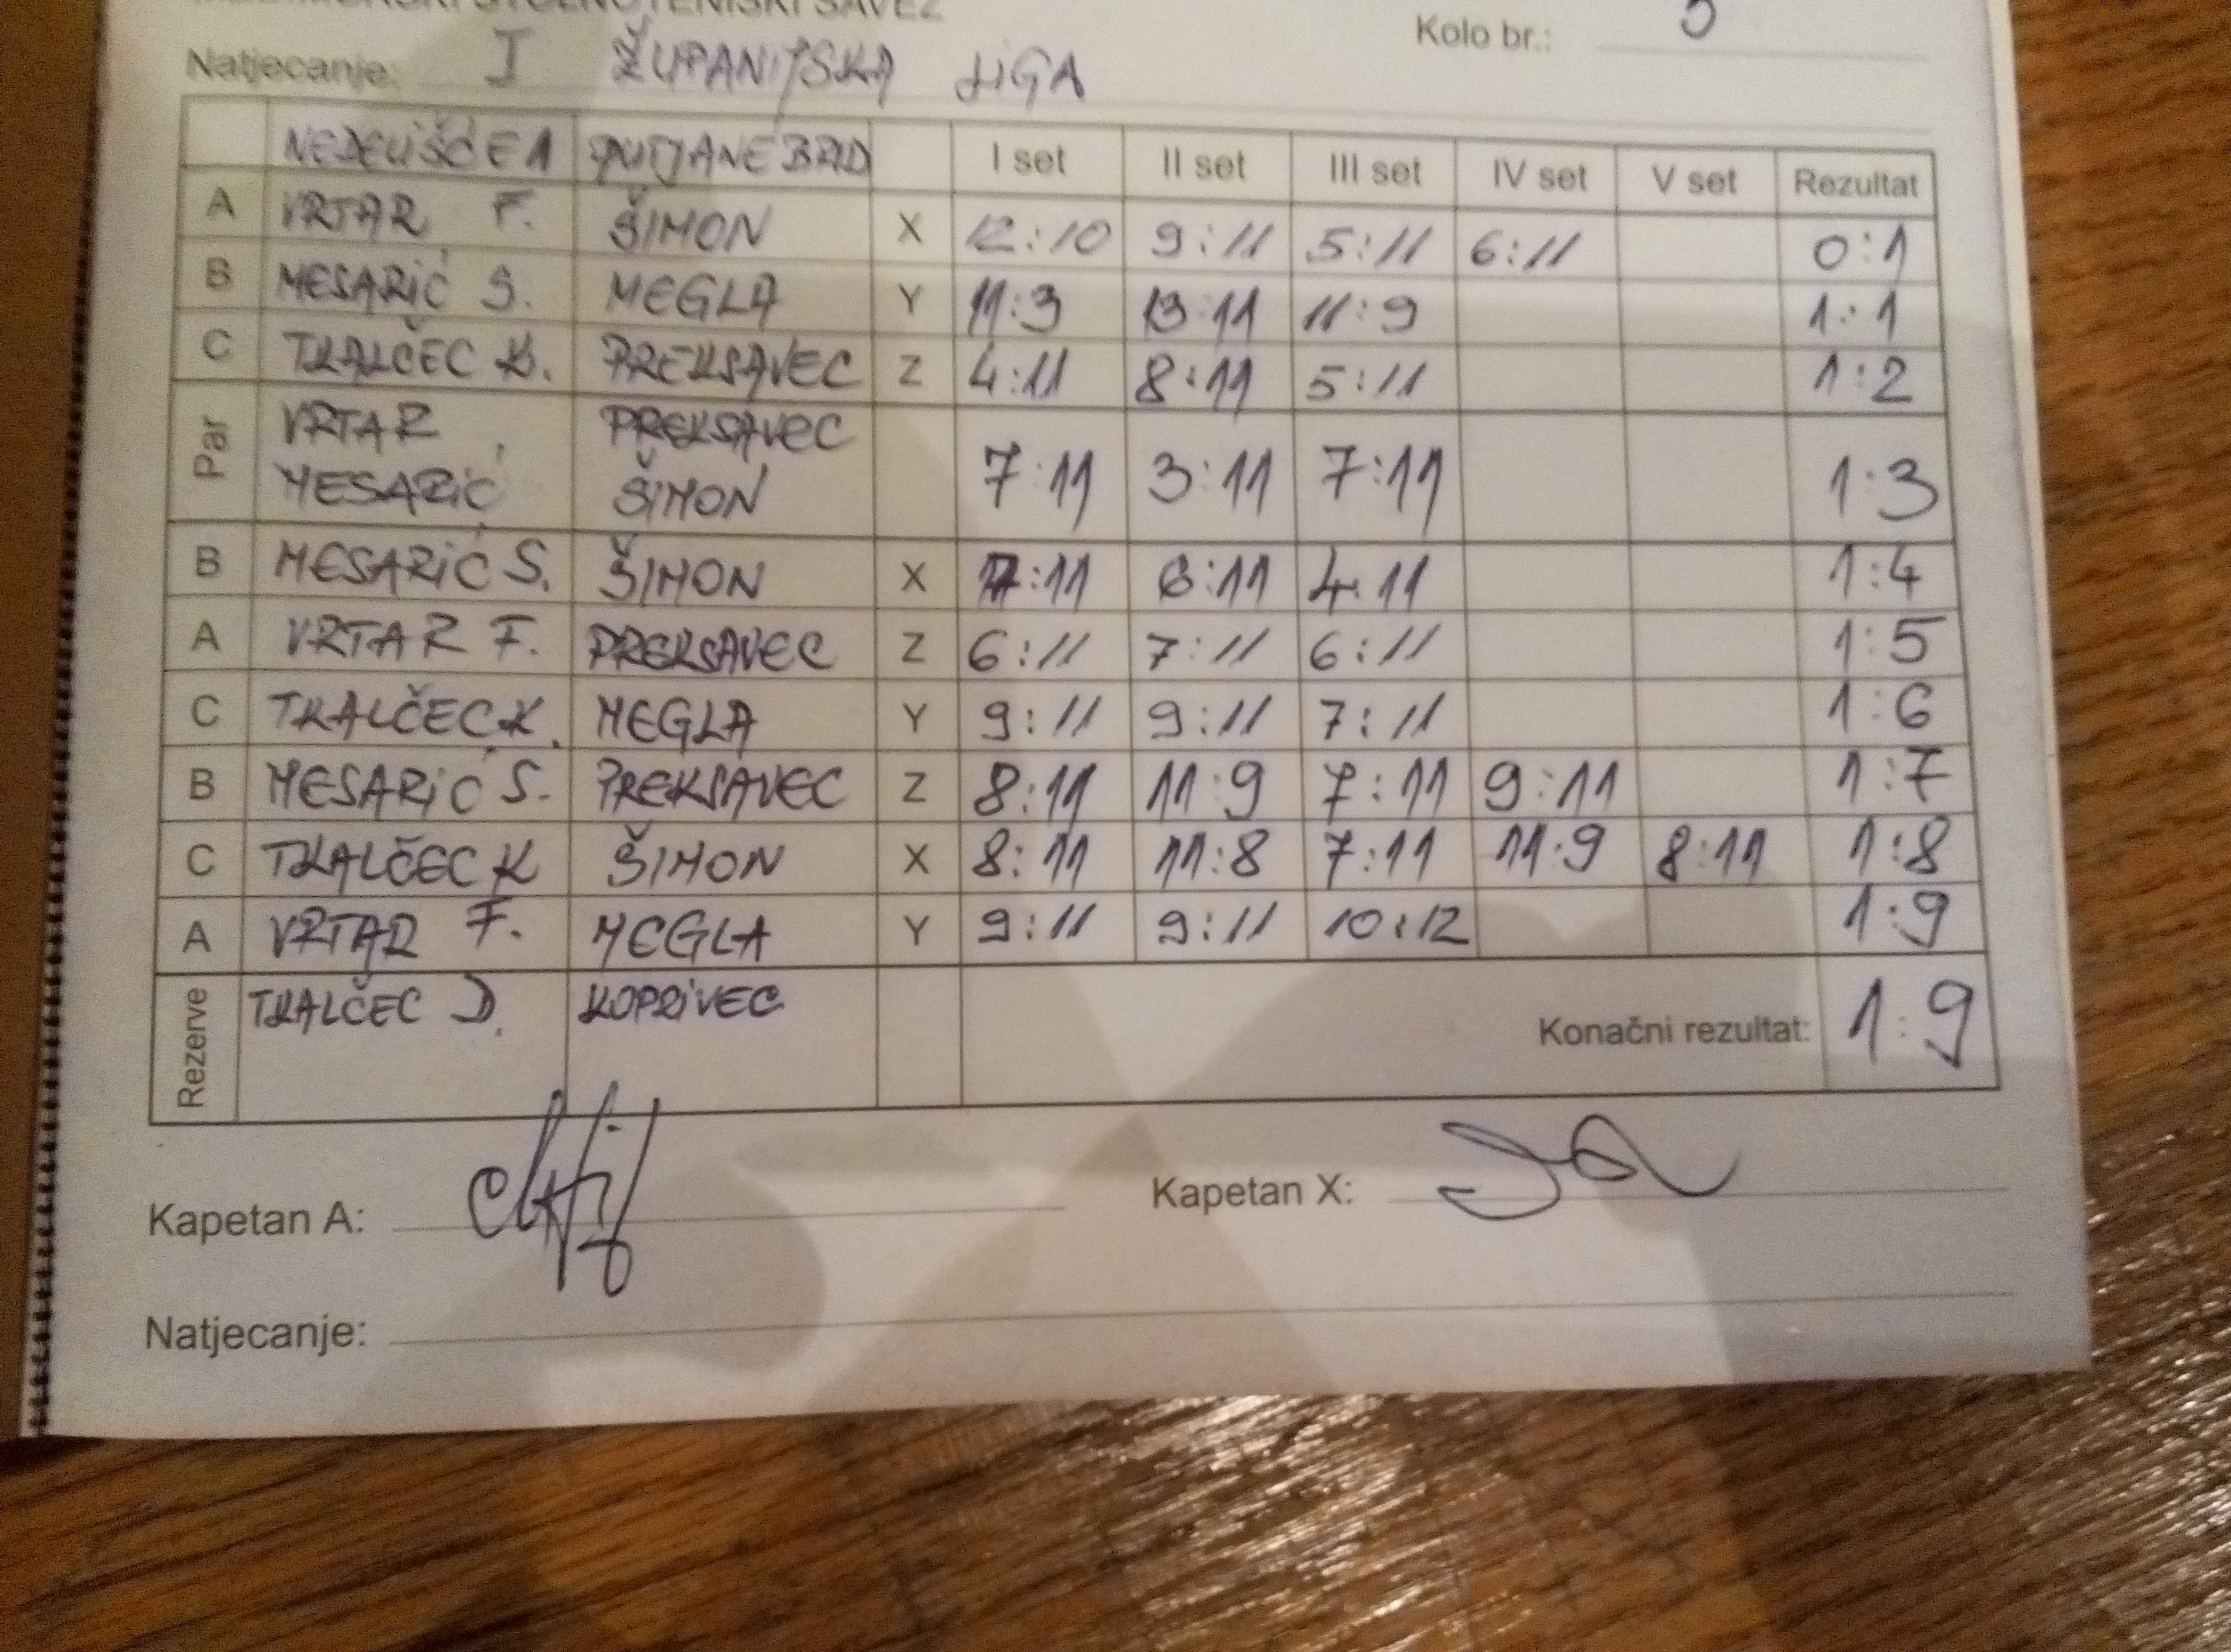 STOLNOTENISKI SAVEZ
Kolo br.:
Natjecanje: I ŽUPANIJSKA LIGA
NEDELIŠĆE 1 I set II set III set IV set V set Rezultat
A VRTAR F. ŠIMON X 12:10 9:11 5:11 6:11 0:1
B MESARIĆ S. MEGLA Y 11:3 13:11 11:9 1:1
C TKALČEC K. PREKSAVEC Z 4:11 8:11 5:11 1:2
Par VRTAR PREKSAVEC
MESARIĆ ŠIMON 7:11 3:11 7:11 1:3
B MESARIĆ S. ŠIMON X 7:11 6:11 4:11 1:4
A VRTAR F. PREKSAVEC Z 6:11 7:11 6:11 1:5
C TKALČEC K. MEGLA Y 9:11 9:11 7:11 1:6
B MESARIĆ S. PREKSAVEC Z 8:11 11:9 7:11 9:11 1:7
C TKALČEC K ŠIMON X 8:11 11:8 7:11 11:9 8:11 1:8
A VRTAR F. MEGLA Y 9:11 9:11 10:12 1:9
Rezerve TKALČEC D. KOPRIVEC
Konačni rezultat: 1:9
Kapetan A:
Kapetan X:
Natjecanje: